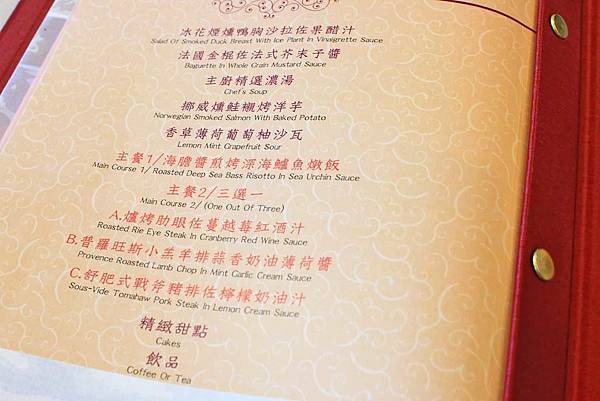 冰花煙燻鴨胸沙拉佐果醋汁
Salad Of Smoked Duck Breast With Ice Plant In Vinaigrette Sauce
法國金棍佐法式芥末子醬
Baguette In Whole Grain Mustard Sauce
主廚精選濃湯
Chef's Soup
挪威燻鮭襯烤洋芋
Norwegian Smoked Salmon With Baked Potato
香草薄荷葡萄柚沙瓦
Lemon Mint Grapefruit Sour
主餐1/海膽醬煎烤深海鱸魚燉飯
Main Course 1/ Roasted Deep Sea Bass Risotto In Sea Urchin Sauce
主餐2/三選一
Main Course 2/ (One Out Of Three)
A.爐烤肋眼佐蔓越莓紅酒汁
Roasted Rie Eye Steak In Cranberry Red Wine Sauce
B.普羅旺斯小羔羊排蒜香奶油薄荷醬
Provence Roasted Lamb Chop In Mint Garlic Cream Sauce
C.舒肥式戰斧豬排佐檸檬奶油汁
Sous-Vide Tomahaw Pork Steak In Lemon Cream Sauce
精緻甜點
Cakes
飲品
Coffee Or Tea